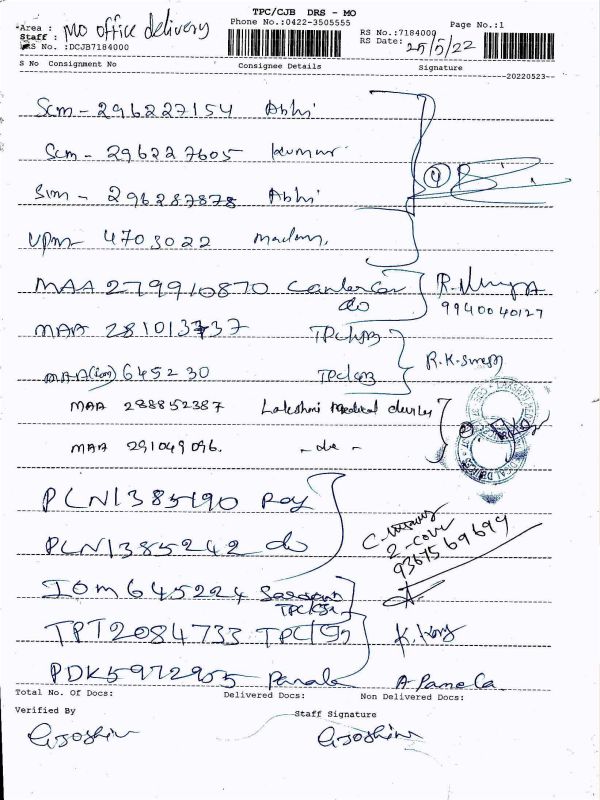 TPC/CJB DRS - MO
Area : MO office delivery Phone No.:0422-3505555 Page No.:1
Staff : RS No.:7184000
DRS No. :DCJB7184000 RS Date: 25/5/22
S No Consignment No Consignee Details Signature
--20220523--
Scm - 296227154 Abhi
Scm - 296227605 Kumar
296287878 Abhi
UPM 4703022 Madam
MAA 279910870 4
do 9940040127
MAA 281013737 TPC/CJB
MAA (Iom) 645230 TPC/CJB R.K.
MAA 288852387 Lakshmi Medical devices
MAA 291049096. - do - 2
PLN1385190 Roy
PLN1385242 do 2-cover
9367569699
IOM645224
TPC/CJB
TPT2084733 TPC/CJB
PDK5972955 A Pamela
Total No. Of Docs: Delivered Docs: Non Delivered Docs:
Verified By Staff Signature